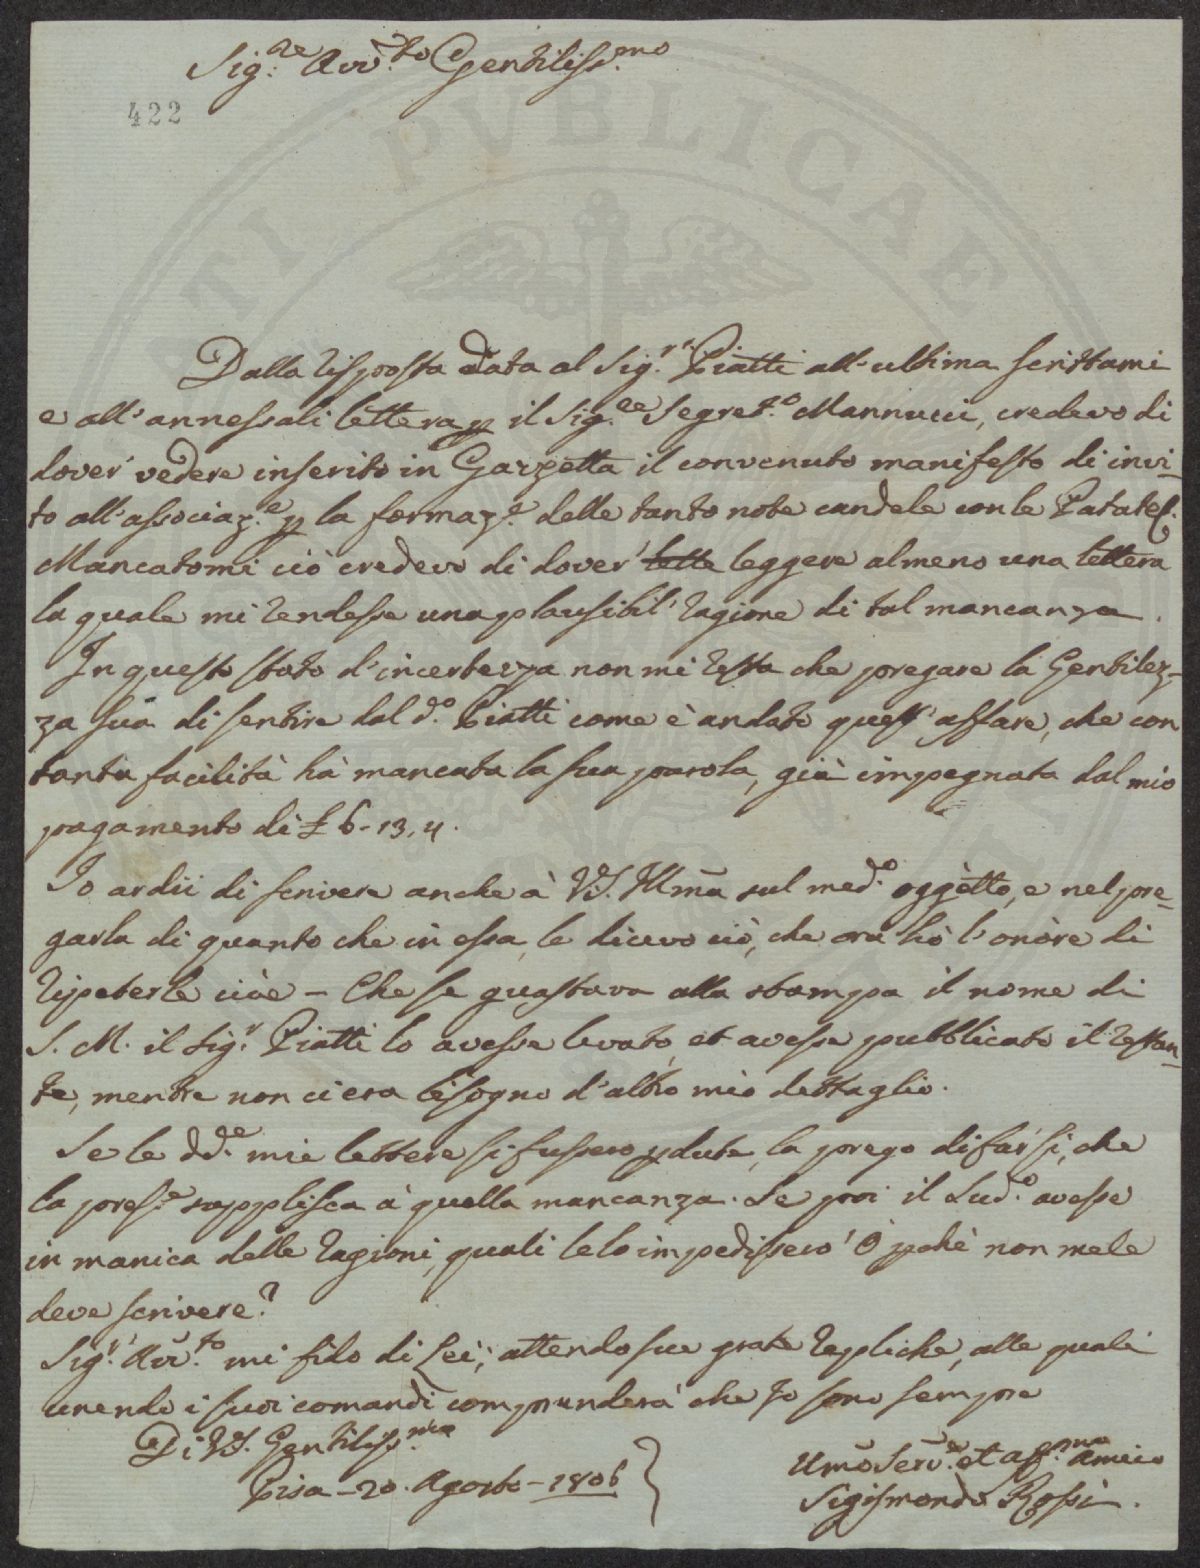 Sig.re Avv.to Gentiliss.mo
422
Dalla risposta data al Sig.r Piatti all'ultima scrittami
e all'annessali lettera p il Sig.re Segret.o Mannucci, credevo di
dover' vedere inserito in Gazzetta il convenuto manifesto di invi-
to all'associaz.e p la formaz.e delle tanto note candele con le Patate.
Mancatomi ciò credevo di dover' leggere almeno una lettera
la quale mi rendesse una plausibil' ragione di tal mancanza.
In questo stato d'incertezza non mi resta che pregare la Gentilez-
za sua di sentire dal d.o Piatti come è andato quest'affare, che con
tanta facilità hà mancata la sua parola, già impegnata dal mio
pagamento di £ 6-13,4.
Io ardii di scrivere anche à V.S. Illma sul med.o oggètto, e nel pre-
garla di quanto che in essa, le dicevo ciò, che ora hò l'onòre di
ripeterle cioè - Che se guastava alla stampa il nome di
S. M. il Sig.r Piatti lo avesse levato, et avesse pubblicato il restan-
te, mentre non ci era bisogno d'altro mio dettaglio.
Se le dd.e mie lettere si fussero pdute, la prego di far' sì, che
la pres.e supplisca à quella mancanza. Se poi il Sud.o avesse
in manica delle ragioni, quali le lo impedissero' ò pchè non me le
deve scrivere?
Sig.r Avv.to mi fido di Lei, attendo sue grate repliche, alle quali
unendo i suoi comandi comprenderà che Io sono sempre
Di V.S. Gentiliss.ma
Pisa - 20. Agosto - 1806
Umo Serv.e et aff.mo Amico
Sigismondo Rossi.